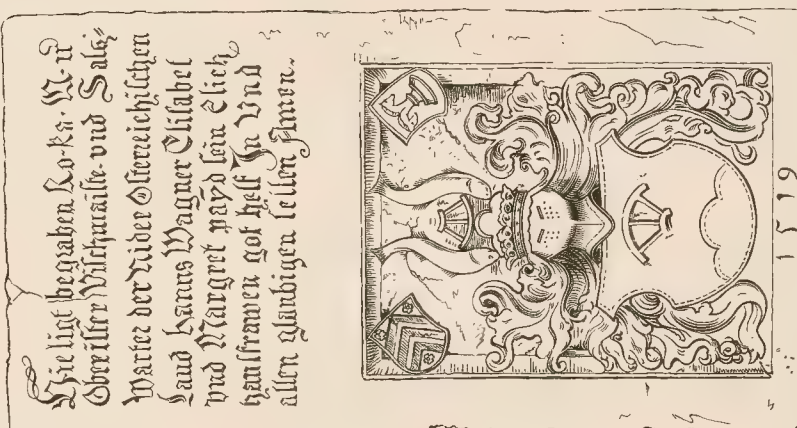 Hie ligt begraben Ro. ka. M. ꝛc
Obereister Vischmaiste. vnd Saltz-
Warter der Nider Osterreichischen
Land Hanns Wagner Elisabet
vnd Margret payd sein Elich
hausfrawen got helf In Vnd
allen glaubigen sellen Amen.
1519